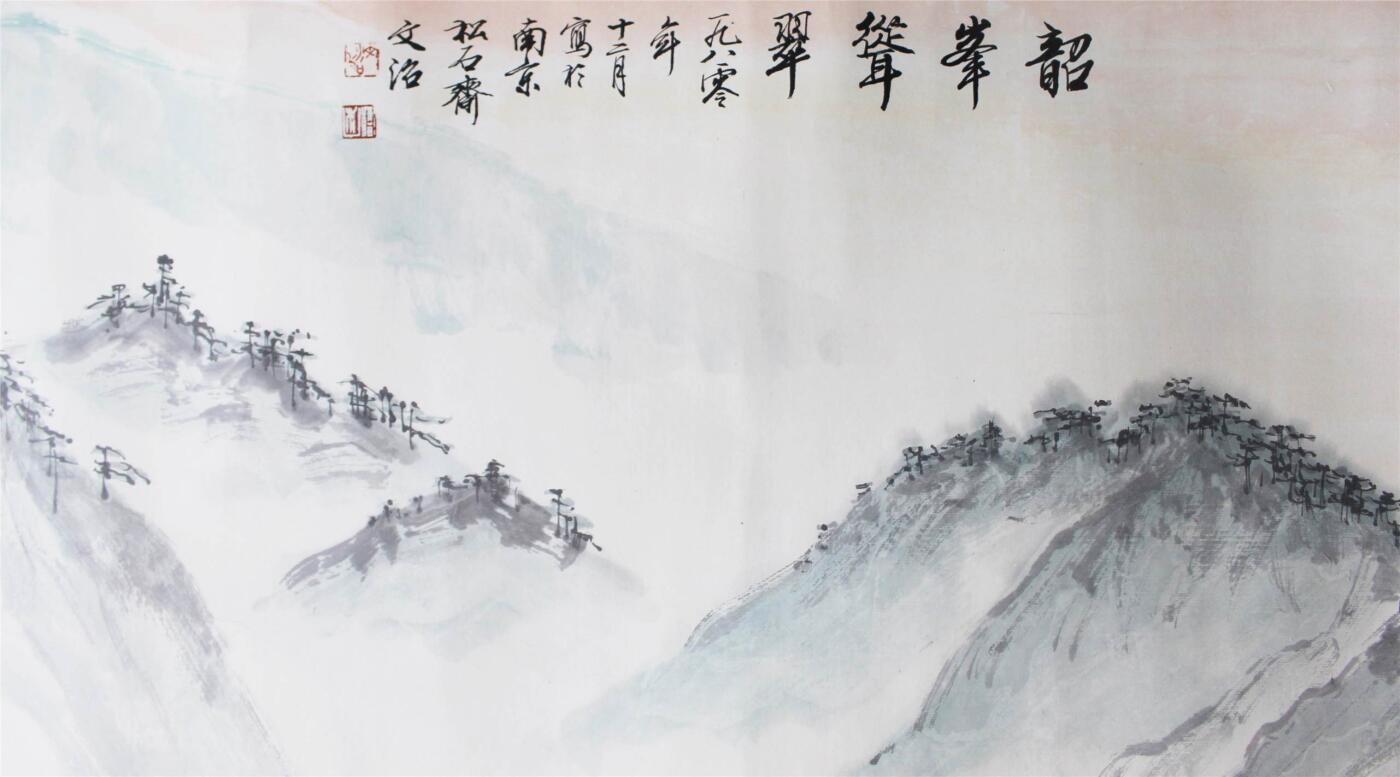 韶
峯
聳
翠
一九八零
年
十二月
寫於
南京
松石齋
文治